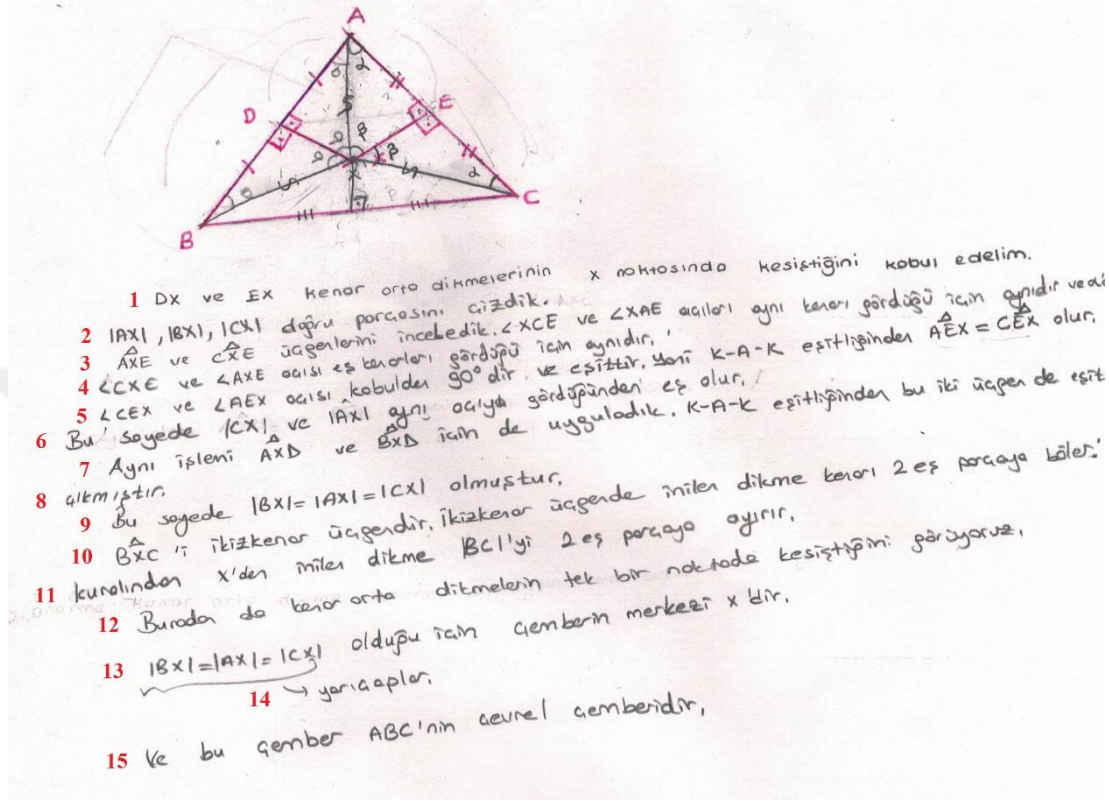 A
D
E
X
B
C
1 DX ve EX kenar orta dikmelerinin x noktasında kesiştiğini kabul edelim.
2 |AX|, |BX|, |CX| doğru parçasını çizdik.
3 AXE ve CXE üçgenlerini inceledik. ∠XCE ve ∠XAE açıları aynı kenarı gördüğü için aynıdır
4 ∠CXE ve ∠AXE açısı eş kenarları gördüğü için aynıdır.
5 ∠CEX ve ∠AEX açısı kabulden 90° dir ve eşittir. Yani K-A-K eşitliğinden AEX = CEX olur.
6 Bu sayede |CX| ve |AX| aynı açıya gördüğünden eş olur.
7 Aynı işlemi AXD ve BXD için de uyguladık. K-A-K eşitliğinden bu iki üçgen de eşit
8 çıkmıştır.
9 Bu sayede |BX| = |AX| = |CX| olmuştur.
10 BXC 'i ikizkenar üçgendir. İkizkenar üçgende inilen dikme kenarı 2 eş parçaya böler.'
11 kuralından X'den inilen dikme |BC|'yi 2 eş parçaya ayırır.
12 Burada da kenar orta dikmelerin tek bir noktada kesiştiğini görüyoruz.
13 |BX| = |AX| = |CX| olduğu için çemberin merkezi x'dir.
14 → yarıçaplar.
15 Ve bu çember ABC'nin çevrel çemberidir.